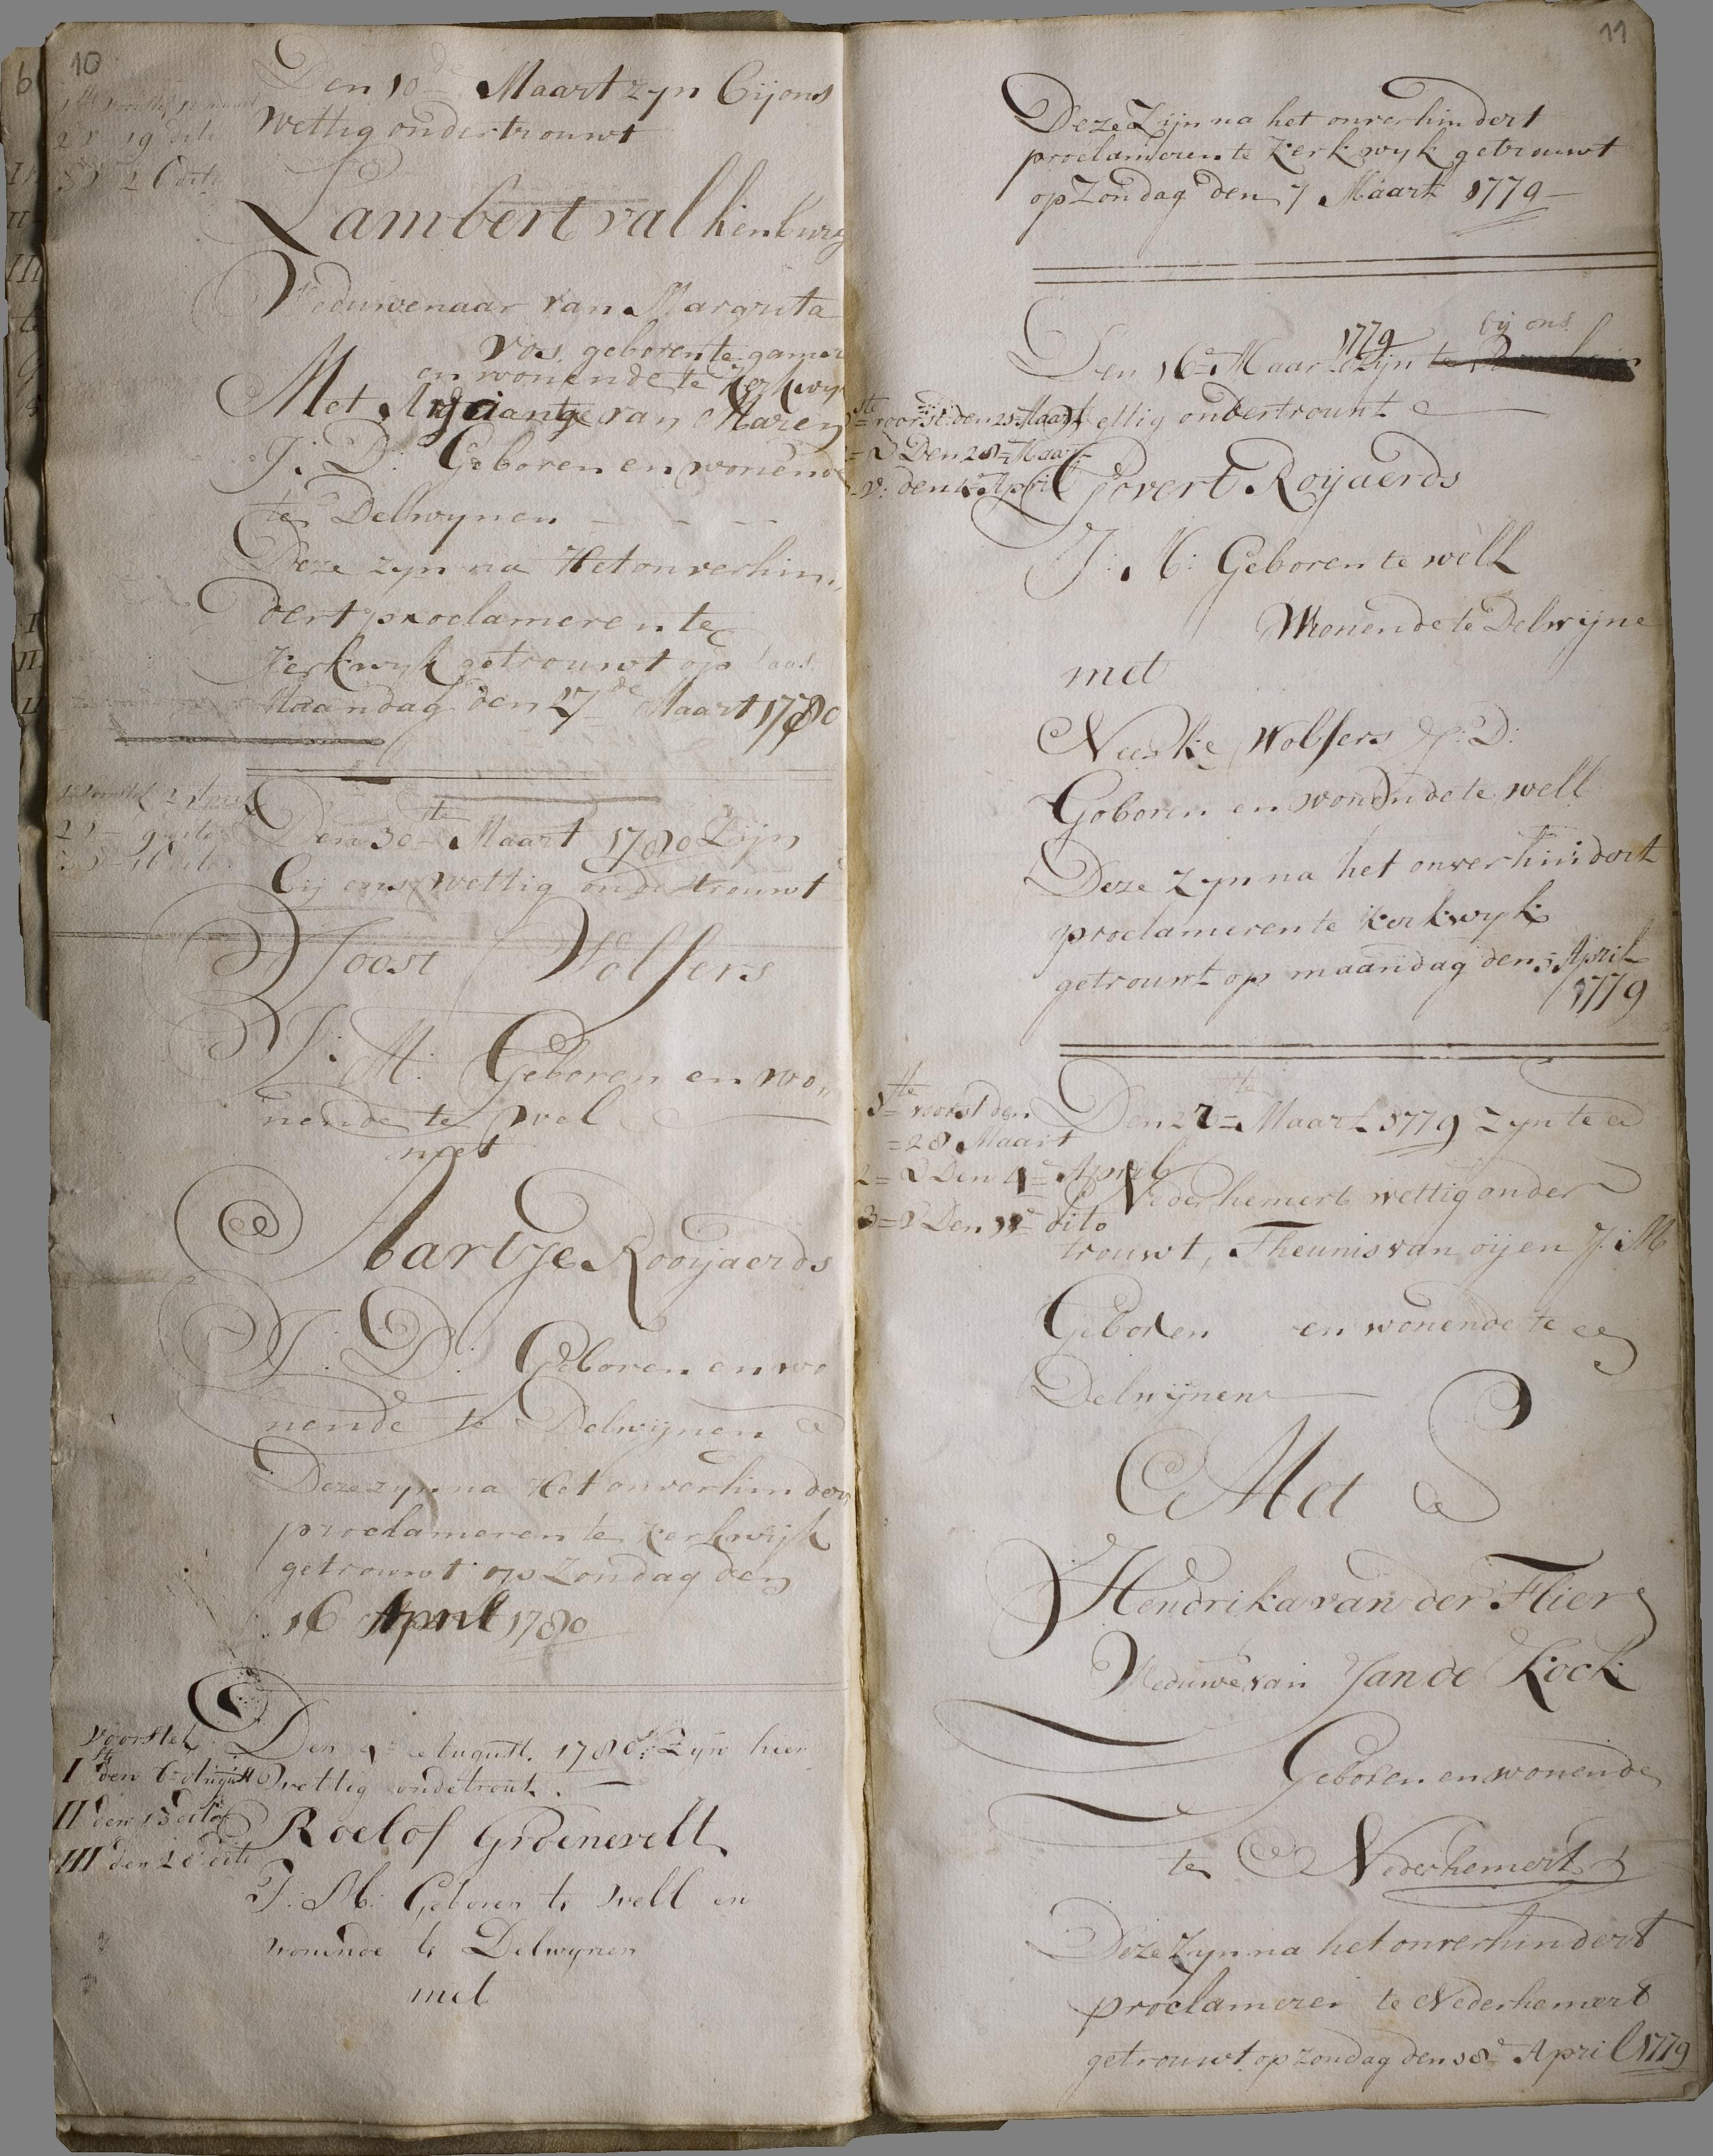 10
Den 10de Maart zyn Bij ons
Wettig ondertrouwt
2de 19 dito
3de 26 dito
Lambert valkenburg
Weeduwenaar van Margrita
Vos, geboren te gamer
en wonende te Kerkwyk
Met van Maren
J: D: Geboren en wonende
te Delwynen
Deze zyn na Het onverhin„
dert proclameren te
Kerkwyk getrouwt op
Maandag den 27de Maart 1780
Den 30ste Maart 1780 Zijn
bij ons wettig ondertrouwt
Joost Wolfers
J: M: Geboren en wo„
nende te wel
met
Aartje Rooijaerds
J: D: Geboren en wo
nende te Delwijnen
Deze zyn na Het onverhindert
proclameren te Kerkwijk
getrouwt op Zondag den
16 April 1780
voorstel
I ste den 6 August
II den 13 dito
III den 20 dito
Den August. 1780 Zijn hier
wettig ondetrout.
Roelof Groenevelt
J: M: Geboren te Well en
wonende te Delwynen
met
11
Deze Zijn na het onverhindert
proclameren te Kerkwyk getrouwt
op Zondag den 7 Maart 1779
1779 bij ons
Den 16e Maart Zijn te
Wettig ondertrouwt
voorst: den 21 Maart
Den 28 Maart
den 4 April
Govert Roijaerds
J: M: Geboren te well
Wonende te Delwijne
met
Neeske Wolfers J: D:
Geboren en wonende te well
Deze zyn na het onverhindert
proclameren te Kerkwyk
getrouwt op maandag den 5 April
1779
1ste voorst den
28 Maart
2 = D Den 4 = April
3 = D Den 11 = dito
Den 27 = Maart 1779 zyn te
Nederhemert wettig onder
trouwt, Theunis van oijen J: M
Geboren en wonende te
Delwijnen
Met
Hendrika van der Flier
Weduwe van Jan de Kock
Geboren en wonende
te Nederhemert
Deze Zyn na het onverhindert
proclameren te Nederhemert
getrouwt op zondag den 18e April 1779